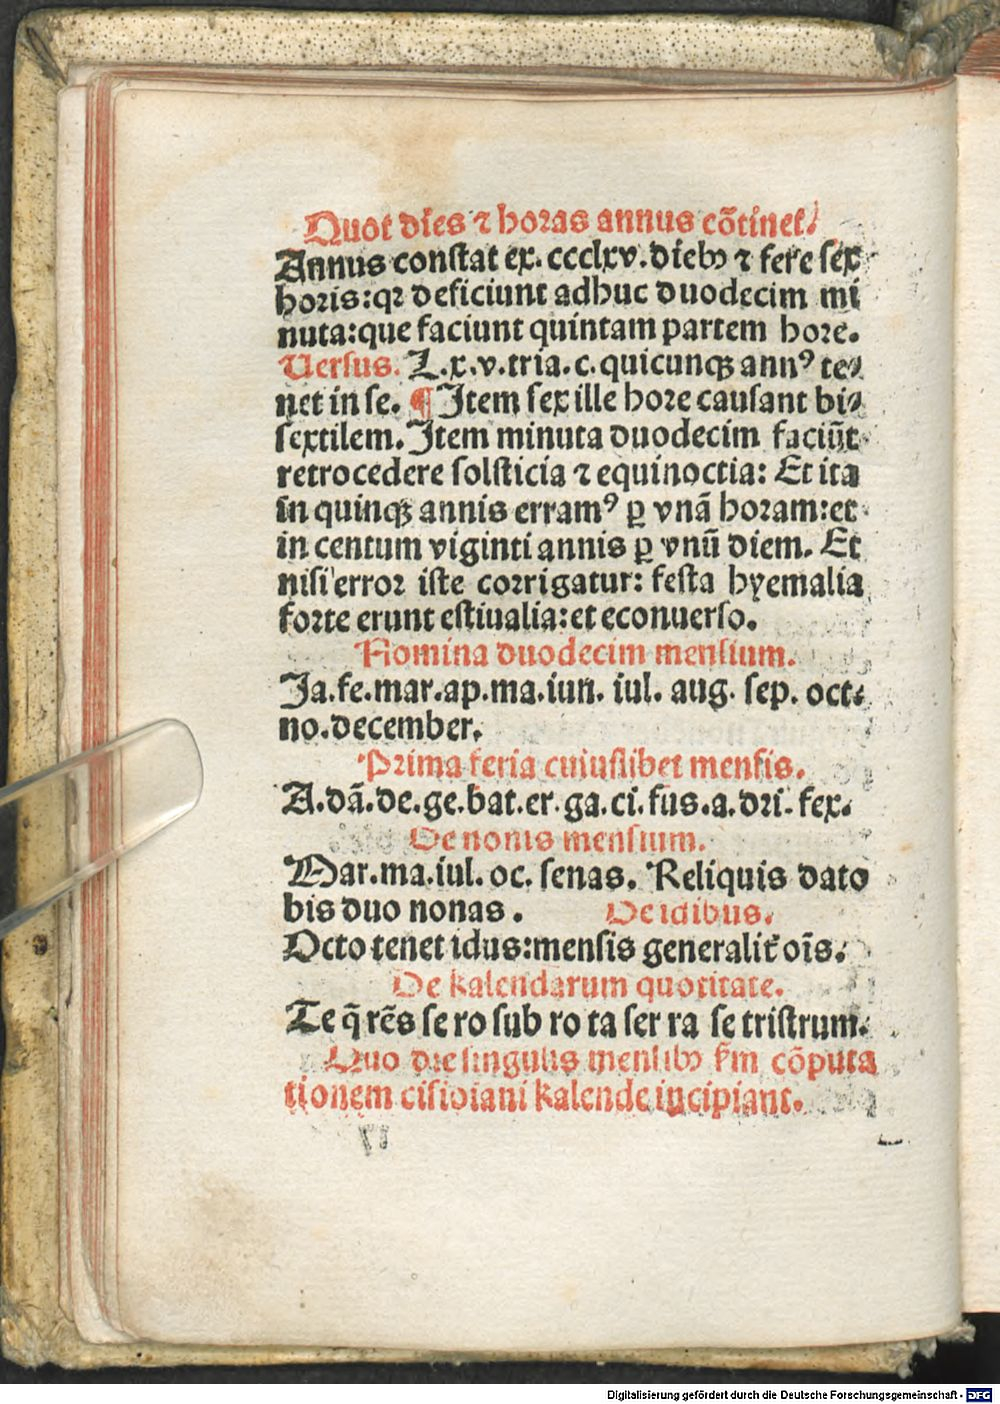 Quot dies ⁊ horas annus cōtinet.
Annus constat ex. ccclxv. dieb⁹ ⁊ fere sex
horis: qꝛ deficiunt adhuc duodecim mi
nuta: que faciunt quintam partem hore.
Versus. L.x.v.tria.c. quicunqꝫ annꝰ te⸗
net in se. ¶ Item sex ille hore causant bi⸗
sextilem. Item minuta duodecim faciūt
retrocedere solsticia ⁊ equinoctia: Et ita
in quinqꝫ annis erramꝰ ꝑ vnā horam: et
in centum viginti annis ꝑ vnū diem. Et
nisi error iste corrigatur: festa hyemalia
forte erunt estiualia: et econuerso.
Nomina duodecim mensium.
Ja.fe.mar.ap.ma.iun. iul. aug. sep. oct.
no.december.
Prima feria cuiuslibet mensis.
A.dā.de.ge.bat.er.ga.ci.fus.a.dri.fex.
De nonis mensium.
Mar.ma.iul.oc. senas. Reliquis dato
bis duo nonas. De idibus.
Octo tenet idus: mensis generalit̄ oīs.
De kalendarum quotitate.
Te q̄ rēs se ro sub ro ta ser ra se tristrum.
Quo die singulis mensib⁹ ẜm cōputa
tionem cisioiani kalende incipiant.
Digitalisierung gefördert durch die Deutsche Forschungsgemeinschaft - DFG